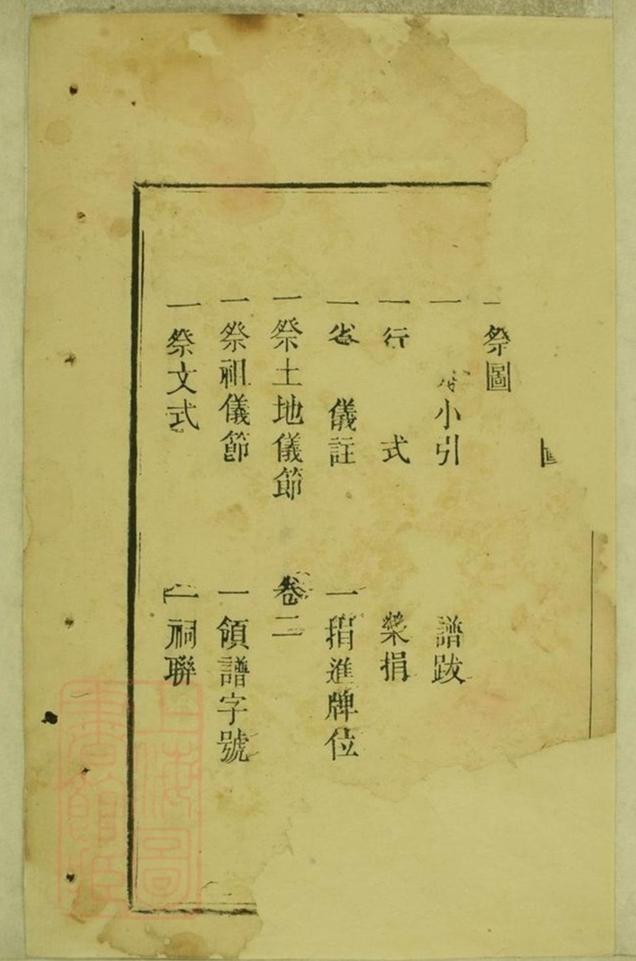 一祭圖
一 小引 譜跋
一行 式 榮捐
一省 儀註 一捐進牌位
一祭土地儀節 卷二
一祭祖儀節 一領譜字號
一祭文式 一祠聯